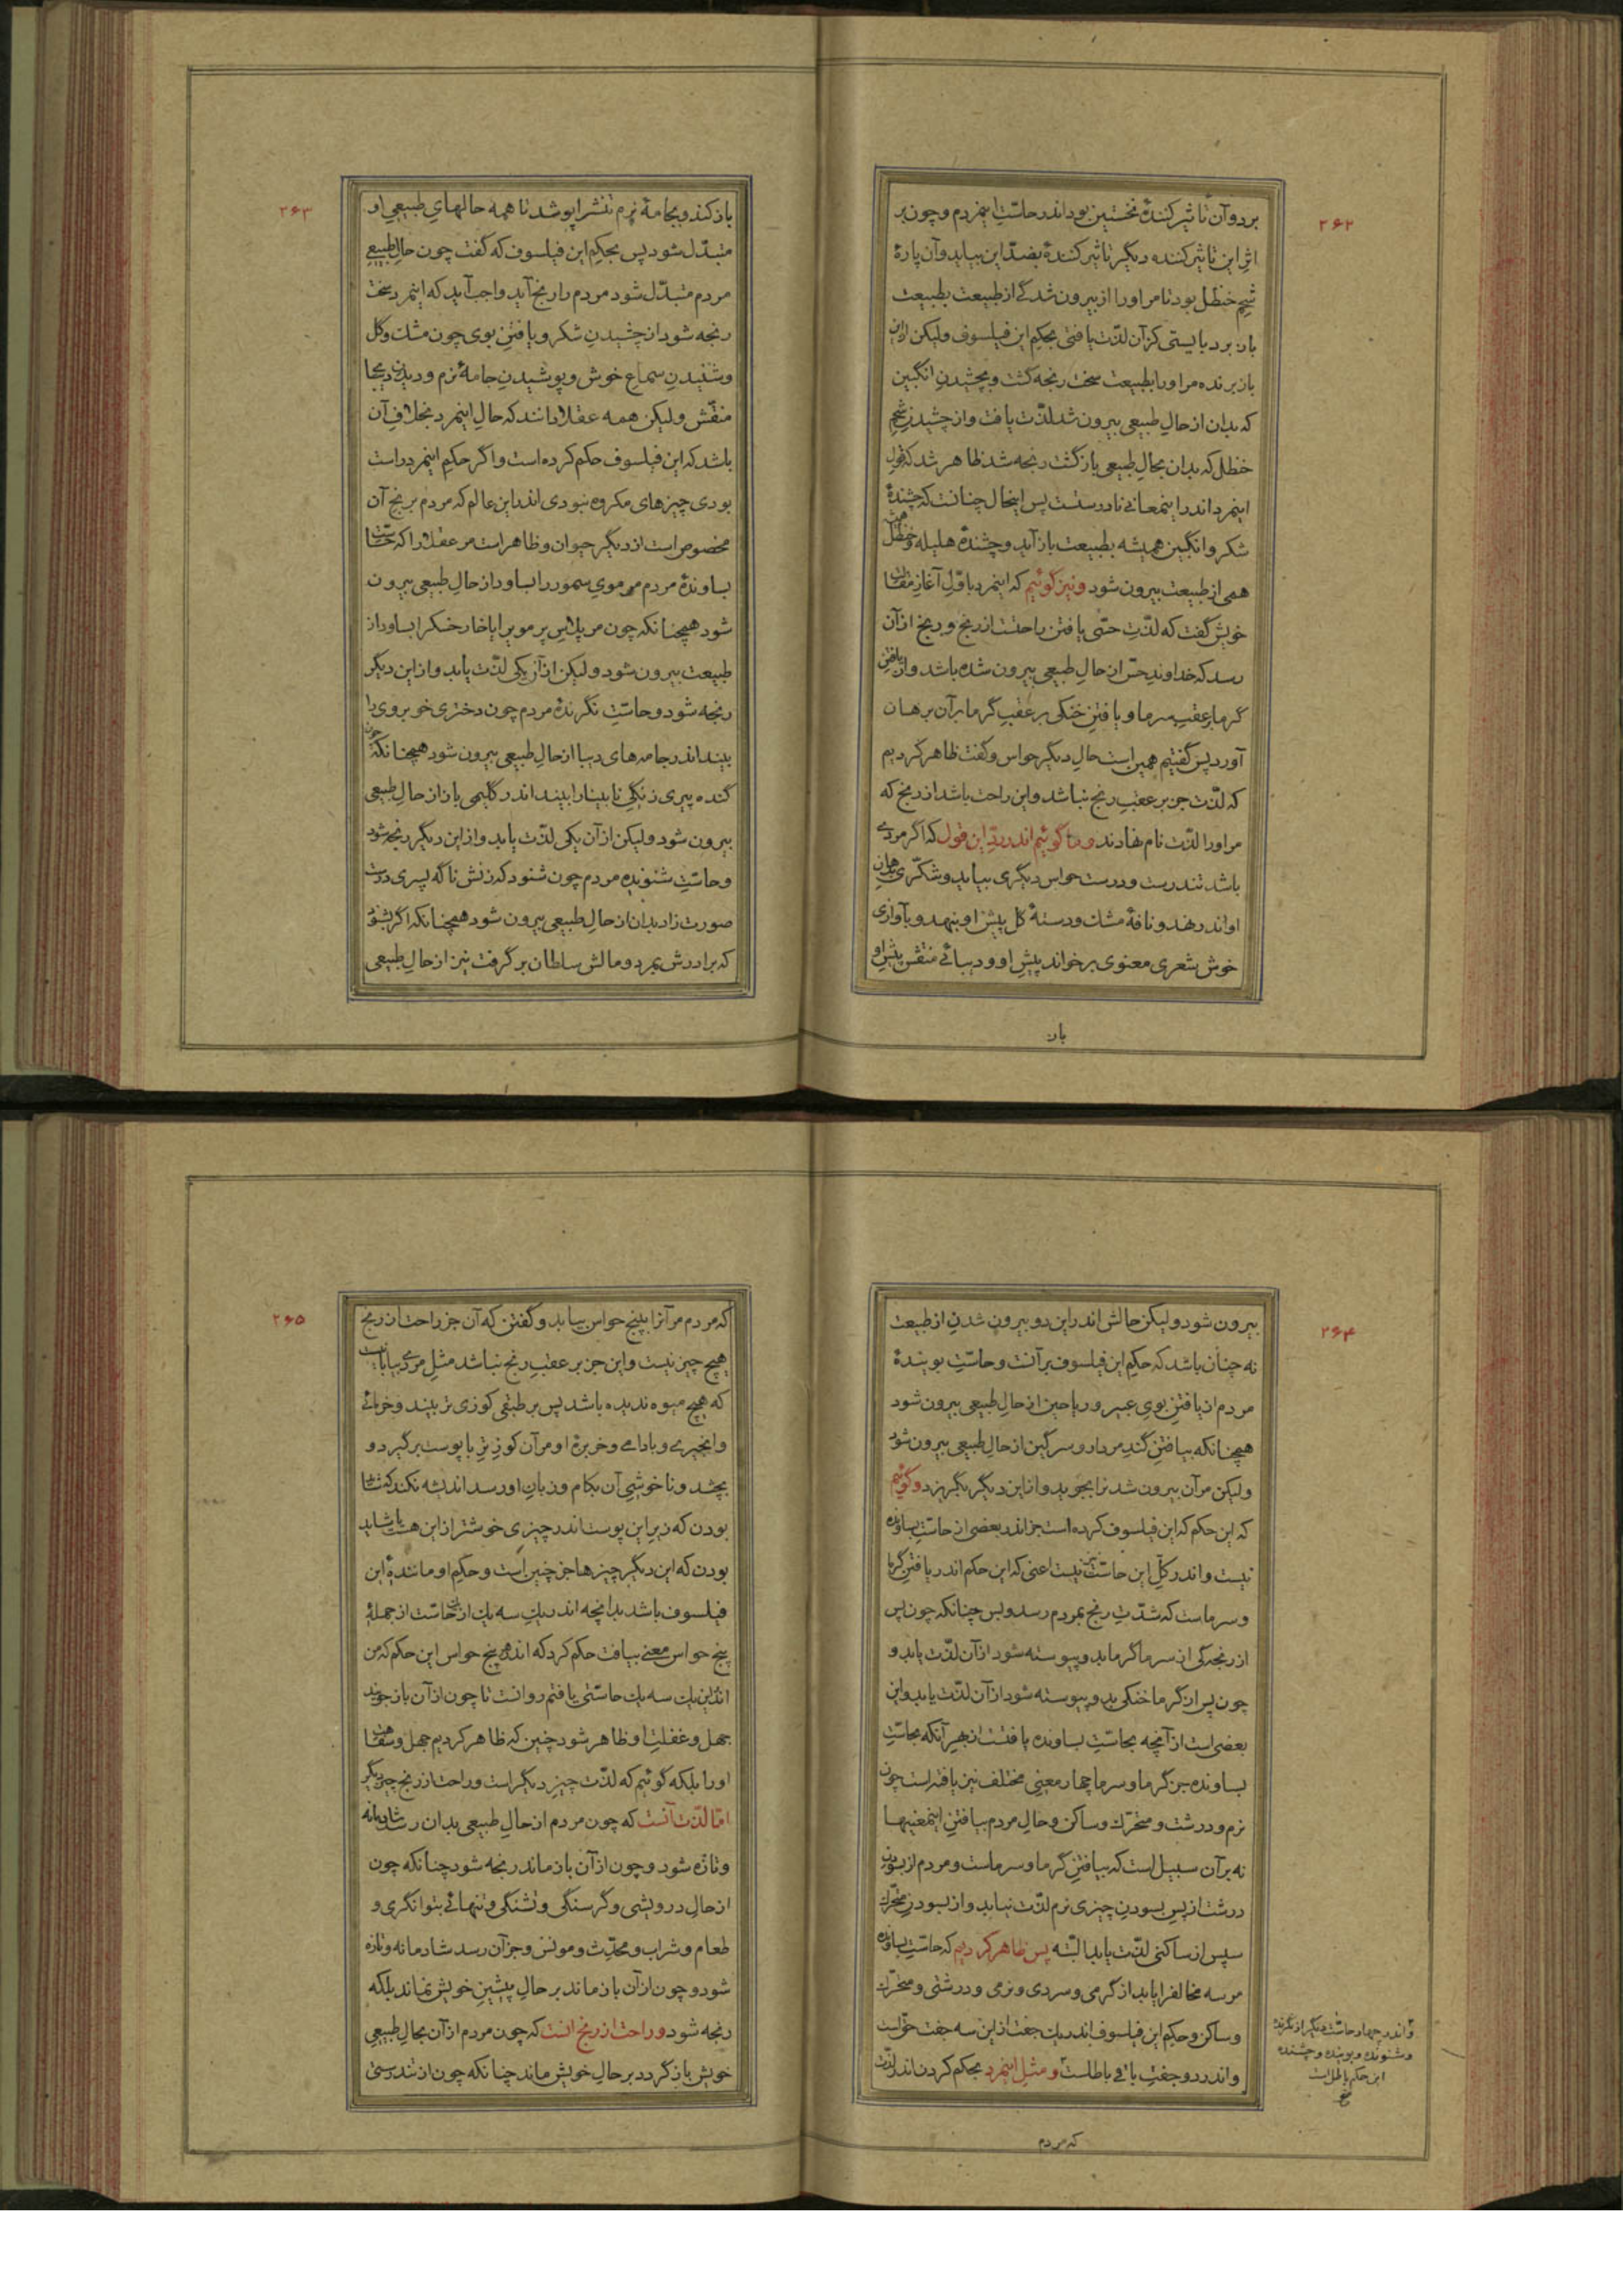 ۲۶۲
برد و آن تاثیر کنندهٔ نخستین بود اندر حاسّتِ اینمردم و چون بر
اثرِ این تاثیر کننده دیگر تاثیر کنندهٔ بضدّ این بیاید و آن پارهٔ
شحمِ حنظل بود تا مر او را از بیرون شدگی از طبیعت بطبیعت
باز برد بایستی کز آن لذّت یافتی بحکمِ این فیلسوف ولیکن از این
باز برنده مر او را بطبیعت سخت رنجه گشت و بچشیدنِ انگبین
که بدان از حالِ طبیعی بیرون شد لذّت یافت و از چشیدنِ شحمِ
حنظل که بدان بحالِ طبیعی بازگشت رنجه شد ظاهر شد که قولِ
اینمرد اندر اینمعانی نادرستست پس اینحال چنانست که چشندهٔ
شکر و انگبین همیشه بطبیعت باز آید و چشندهٔ هلیله و حنظل
همی از طبیعت بیرون شود و نیز گوئیم که اینمرد باوّل آغازِ مقالت
خویش گفت که لذّتِ حسّی یافتنِ راحتست از رنج و رنج از آن
رسد که خداوندِ حسّ از حالِ طبیعی بیرون شده باشد و از یافتنِ
گرما بر عقبِ سرما و یافتنِ خنکی بر عقبِ گرما بر آن برهان
آورد پس گفتیم همین است حالِ دیگر حواس و گفت ظاهر کردیم
که لذّت جز بر عقبِ رنج نباشد و این راحت باشد از رنج که
مر او را لذّت نام نهادند و ما گوئیم اندر ردّ این قول که اگر مردی
باشد تندرست و درست حواس دیگری بیاید و شکّری بدهانِ
او اندر نهد و نافهٔ مشک و دستهٔ گل پیش او بنهد و بآوازی
خوش شعری معنوی برخواند پیشِ او و دیبائی منقّش پیشِ او
باز
۲۶۳
باز کند و بجامهٔ نرم تنش را پوشد تا همه حالهایِ طبیعیِ او
متبدّل شود پس بحکمِ این فیلسوف که گفت چون حالِ طبیعیِ
مردم متبدّل شود مردم را رنج آید واجب آید که اینمرد سخت
رنجه شود از چشیدنِ شکر و یافتنِ بوی چون مشک و گل
و شنیدنِ سماعِ خوش و پوشیدنِ جامهٔ نرم و دیدنِ دیبا
منقّش ولیکن همه عقلا دانند که حالِ اینمرد بخلافِ آن
باشد که این فیلسوف حکم کرده است و اگر حکمِ اینمرد راست
بودی چیزهای مکروه نبودی اندر این عالم که مردم برنجِ آن
مخصوص است از دیگر حیوان و ظاهر است مر عقلا را که حاسّت
بساوندهٔ مردم مر مویِ سمور را بساود از حالِ طبیعی بیرون
شود همچنانکه چون مر پلاسِ پر مو یرا یا خار خسکرا بساود از
طبیعت بیرون شود ولیکن از آن یکی لذّت یابد و از این دیگر
رنجه شود و حاسّتِ نگرندهٔ مردم چون دختری خوبروی را
بیند اندر جامه‌های دیبا از حالِ طبیعی بیرون شود همچنانکه چون
گنده پیری زنگیِ نابینا را بیند اندر گلیمی باز از حالِ طبیعی
بیرون شود ولیکن از آن یکی لذّت یابد و از این دیگر رنجه شود
و حاسّتِ شنوندهٔ مردم چون شنود که زنش ناگه پسری درست
صورت زاد بدان از حالِ طبیعی بیرون شود همچنانکه اگر بشنود
که برادرش بمرد و مالش سلطان برگرفت نیز از حالِ طبیعی
۲۶۴
بیرون شود ولیکن حالش اندر این دو بیرون شدنِ از طبیعت
نه چنان باشد که حکمِ این فیلسوف بر آنست و حاسّتِ بویندهٔ
مردم از یافتنِ بویِ عبیر و ریاحین از حالِ طبیعی بیرون شود
همچنانکه بیافتنِ گندِ مردار و سرگین از حالِ طبیعی بیرون شود
ولیکن مر آن بیرون شدنرا بجوید و از این دیگر بگریزد و گوئیم
که این حکم که این فیلسوف کرده است جز اندر بعضی از حاسّتِ بساونده
نیست و اندر کلّ این حاسّت نیز نیست اعنی که این حکم اندر یافتنِ گرما
و سرماست که شدّتِ رنج بمردم رسد و بس چنانکه چون پس
از رنجگی از سرما گرما بدو پیوسته شود از آن لذّت یابد و
چون پس از گرما خنکی بدو پیوسته شود از آن لذّت یابد و این
بعضی است از آنچه بحاسّتِ بساونده یافتست از بهرِ آنکه بحاسّتِ
بساونده جز گرما و سرما چهار معنیِ مختلف نیز یافته است چون
نرم و درشت و متحرّک و ساکن و حالِ مردم بیافتنِ اینمعنیها
نه بر آن سبیل است که بیافتنِ گرما و سرماست و مردم از بسودنِ
درشت از پسِ بسودنِ چیزی نرم لذّت نیابد و از بسودنِ متحرّک
سپس از ساکنی لذّت یابد البتّه پس ظاهر کردیم که حاسّتِ بساونده
مر سه مخالفرا یابد از گرمی و سردی و نرمی و درشتی و متحرّک
و ساکن و حکمِ این فیلسوف اندر یک جفت از این سه جفت حقّ است
و اندر دو جفتِ باقی باطلست و مثلِ اینمرد بحکم کردن اندر لذّت
و اندر چهار حاسّت دیگر از نگرنده
و شنونده و بوینده و چشنده
این حکم باطل است
صح
که مردم
۲۶۵
که مردم مر آنرا بپنج حواس بیابد و گفتن که آن جز راحت از رنج
هیچ چیز نیست و این جز بر عقبِ رنج نباشد مثلِ مردی بیابانیست
که هیچ میوه ندیده باشد پس بر طبقی گوزی تر بیند و خرمائی
و انجیری و بادامی و خربزهٔ او مر آن گوزِ ترِ با پوست برگیرد و
بچشد و ناخوشیِ آن بکام و زبانِ او رسد اندیشه نکند که شاید
بودن که زیرِ این پوست اندر چیزی خوشتر از این هست یا شاید
بودن که این دیگر چیزها جز چنین است و حکمِ او مانندهٔ این
فیلسوف باشد بدانچه اندر یک سه یک از یک حاسّت از جملهٔ
پنج حواس معنی بیافت حکم کرد که اندر هر پنج حواس این حکم که من
اندر این یک سه یک حاسّتی یافتم روانست تا چون از آن باز جویند
جهل و غفلتِ او ظاهر شود چنین که ظاهر کردیم جهل و سفاهت
او را بلکه گوئیم که لذّت چیزِ دیگر است و راحت از رنج چیزِ دیگر
امّا لذّت آنست که چون مردم از حالِ طبیعی بدان رسد شادمانه
و تازه شود و چون از آن باز ماند رنجه شود چنانکه چون
از حالِ درویشی و گرسنگی و تشنگی و تنهائی بتوانگری و
طعام و شراب و محدّث و مونس و جز آن رسد شادمانه و تازه
شود و چون از آن باز ماند بر حالِ پیشینِ خویش نماند بلکه
رنجه شود و راحت از رنج آنست که چون مردم از آن بحالِ طبیعیِ
خویش بازگردد بر حالِ خویش ماند چنانکه چون از تندرستی